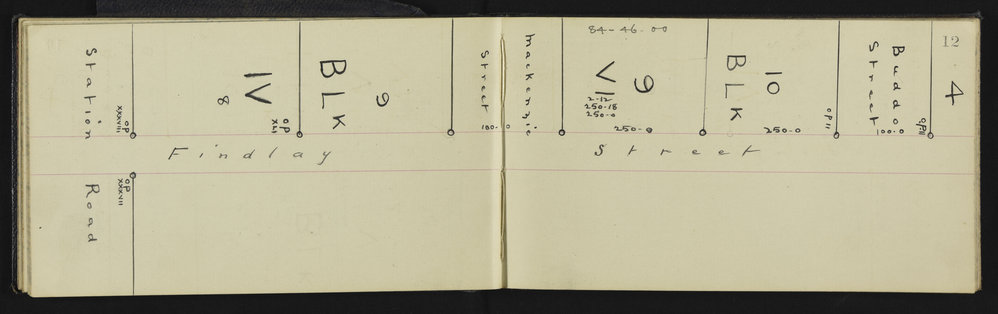 12
84-46-00
Station
Road
OP
XXXVIII
OP
XXXVII
IV
8
OP
XLI
BLK
9
Mackenzie
Street
100-0
VI
9
2-12
250-18
250-0
250-0
BLK
10
250-0
OP II
Buddo
Street
100-0
OP II
4
Findlay Street